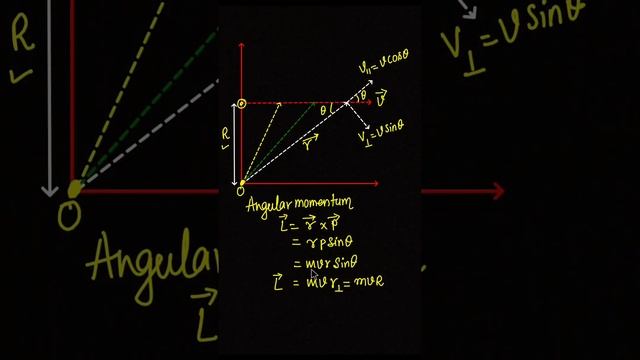 R
O
Angular
L⃗
V⊥ = v sinθ
V₁₁ = v cosθ
θ
θ
v⃗
V⊥ = v sinθ
R
r⃗
O
Angular momentum
L⃗ = r⃗ × p⃗
= r p sinθ
= m v r sinθ
L⃗ = m v r⊥ = m v R